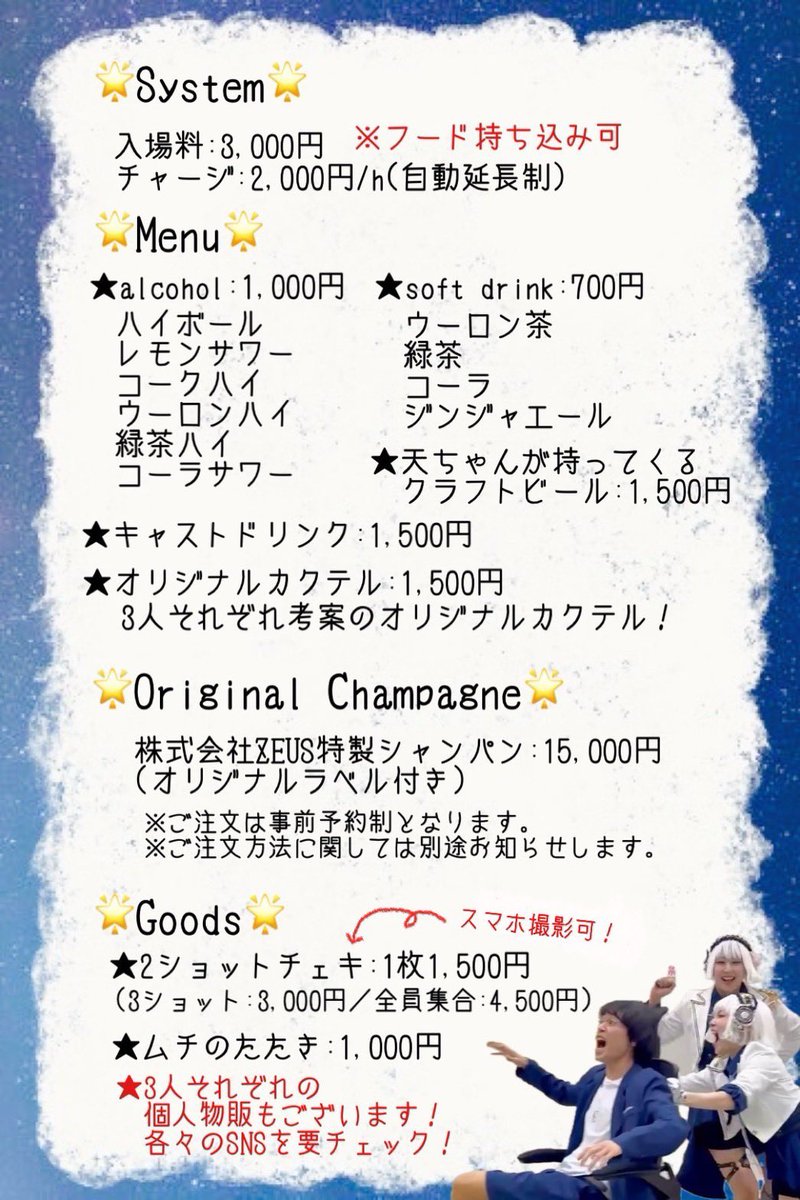 🌟System🌟
入場料:3,000円 ※フード持ち込み可
チャージ:2,000円/h(自動延長制)
🌟Menu🌟
★alcohol:1,000円
ハイボール
レモンサワー
コークハイ
ウーロンハイ
緑茶ハイ
コーラサワー
★soft drink:700円
ウーロン茶
緑茶
コーラ
ジンジャエール
★天ちゃんが持ってくる
クラフトビール:1,500円
★キャストドリンク:1,500円
★オリジナルカクテル:1,500円
3人それぞれ考案のオリジナルカクテル!
🌟Original Champagne🌟
株式会社ZEUS特製シャンパン:15,000円
(オリジナルラベル付き)
※ご注文は事前予約制となります。
※ご注文方法に関しては別途お知らせします。
🌟Goods🌟
スマホ撮影可!
★2ショットチェキ:1枚1,500円
(3ショット:3,000円/全員集合:4,500円)
★ムチのたたき:1,000円
★3人それぞれの
個人物販もございます!
各々のSNSを要チェック!